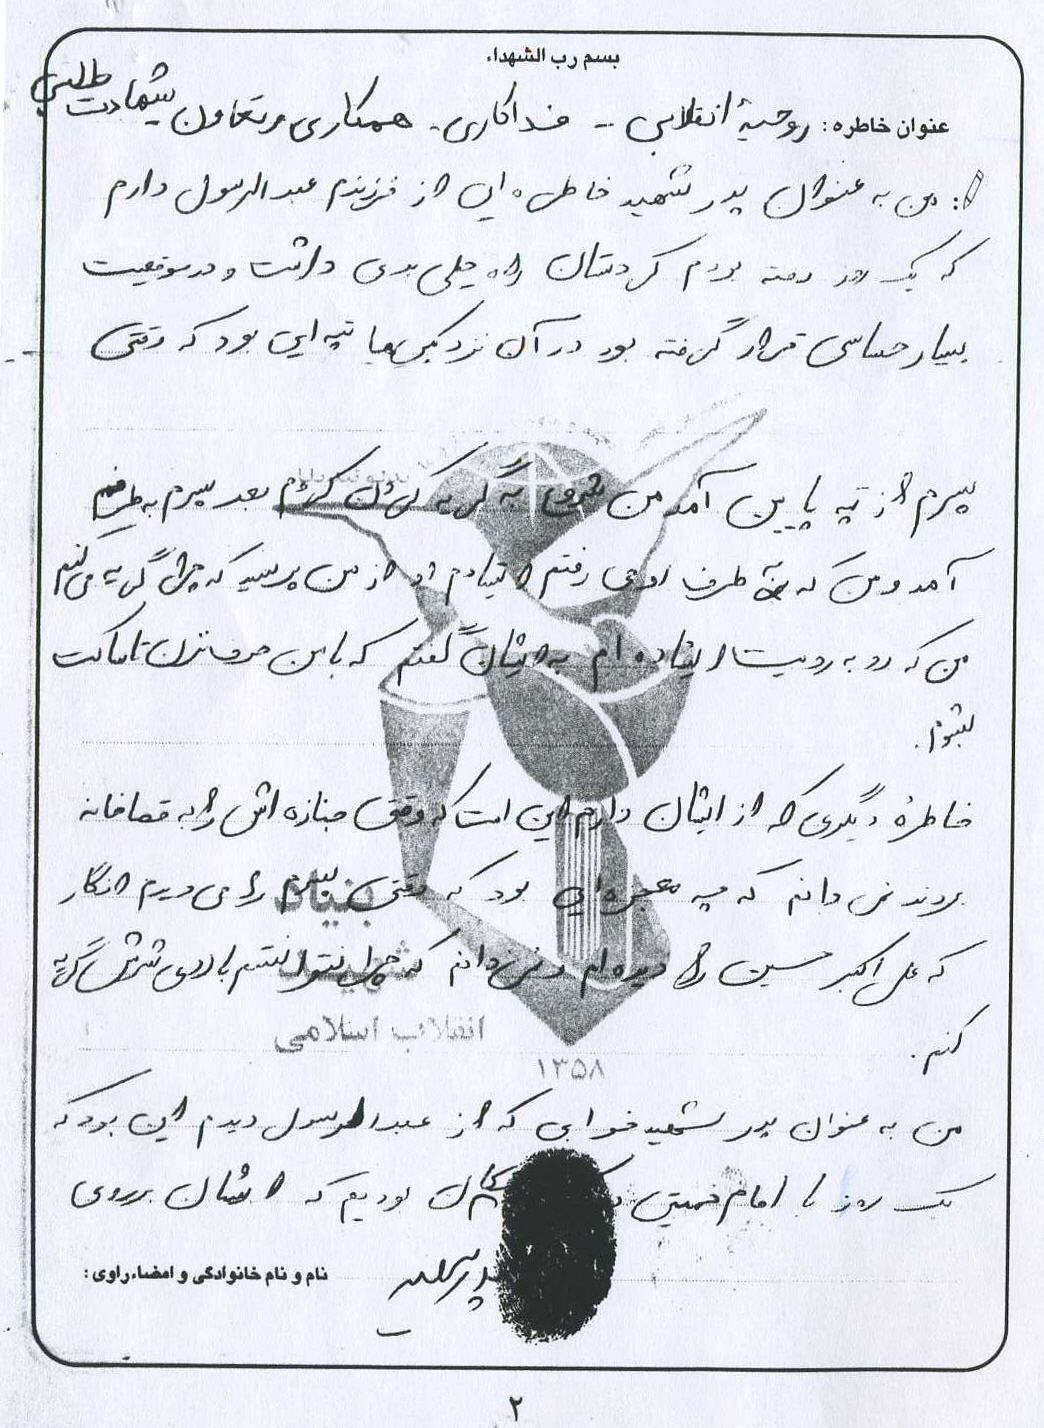 بسم رب الشهداء
عنوان خاطره: روحیهٔ انقلابی - فداکاری - همکاری و تعاون شهادت طلبی
من به عنوان پدر شهید خاطره ای از فرزندم عبدالرسول دارم
که یک روز رفته بودم کردستان راه خیلی بدی داشت و در موقعیت
بسیار حساسی قرار گرفته بود در آن نزدیکی ها تپه ای بود که وقتی
پسرم از تپه پایین آمد من شروع به گریه کردن کردم بعد پسرم به طرفم
آمد و من که به طرف او می رفتم ایستادم او از من پرسید که چرا گریه می کنم
من که رو به رویت ایستاده ام به ایشان گفتم که با من حرف نزن تا ساکت
بشوم.
خاطرهٔ دیگری که از ایشان دارم این است که وقتی جنازه اش را به
بردند نمی دانم که چه معجزه ای بود که وقتی پسرم را می دیدم انگار
که علی اکبر حسین را دیده ام و نمی دانم که چرا نتوانستم بالای سرش گریه
کنم.
من به عنوان پدر شهید خوابی که از عبدالرسول دیدم این بود که
یک روز با امام خمینی بودیم که ایشان بر روی
پدر شهید
نام و نام خانوادگی و امضاء راوی:
بنیاد
شهید
انقلاب اسلامی
۱۳۵۸
۲